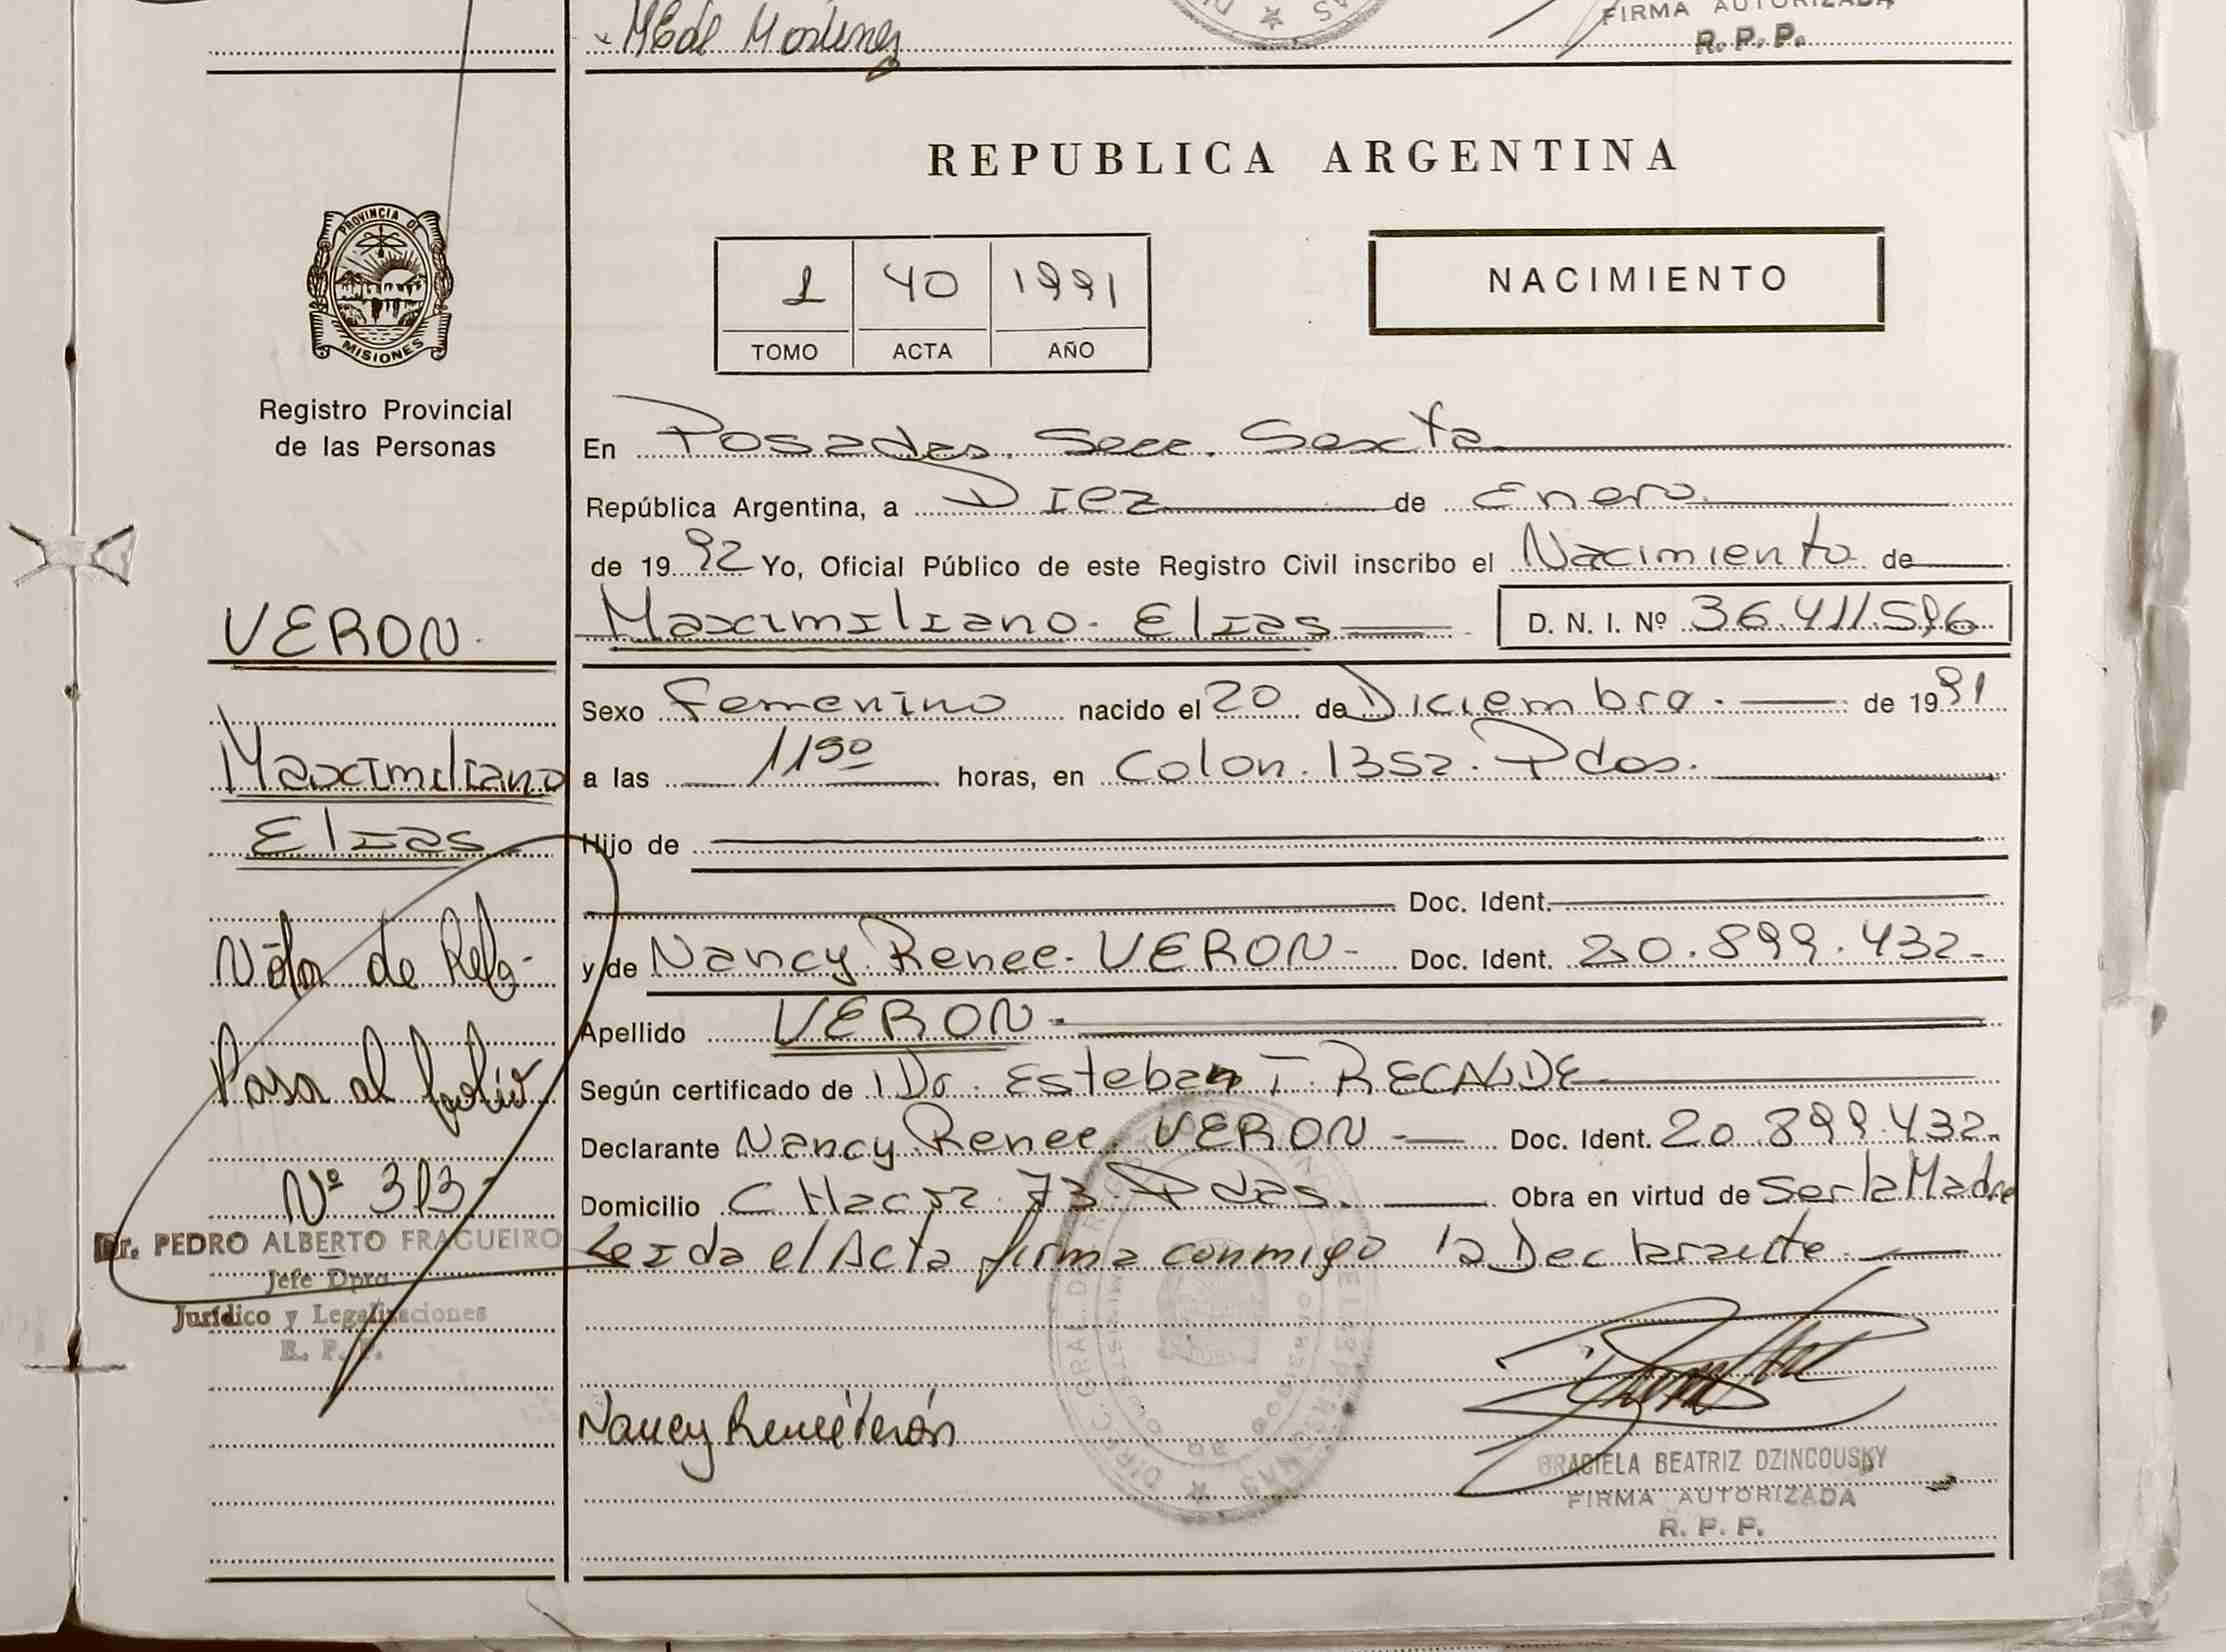 MEdl Martinez
FIRMA AUTORIZADA
R. P. P.
REPUBLICA ARGENTINA
PROVINCIA DE
MISIONES
1 40 1991
TOMO ACTA AÑO
NACIMIENTO
Registro Provincial
de las Personas
VERON.
Maximiliano
Elias
Nota de Refo-
Pasa al folio
Nº 313-
Dr. PEDRO ALBERTO FRAGUEIRO
Jefe Dpto
Jurídico y Legalizaciones
R. P. P.
En Posadas. Secc. Sexta
República Argentina, a Diez de Enero
de 1992 Yo, Oficial Público de este Registro Civil inscribo el Nacimiento de
Maximiliano. Elias D. N. I. Nº 36.411.596
Sexo femenino nacido el 20 de Diciembre. de 1991
a las 1150 horas, en Colon. 1352. Pdas.
Hijo de
Doc. Ident.
y de Nancy Renee. VERON- Doc. Ident. 20.899.432-
Apellido VERON.
Según certificado de Dr. Esteban T. RECALDE
Declarante Nancy Renee. VERON - Doc. Ident. 20.899.432-
Domicilio C Hacra 73. Pdas. Obra en virtud de Ser la Madre
Leida el Acta firma conmigo la Declarante.
Nancy Reneé Verón
GRACIELA BEATRIZ DZINCOUSKY
FIRMA AUTORIZADA
R. P. P.